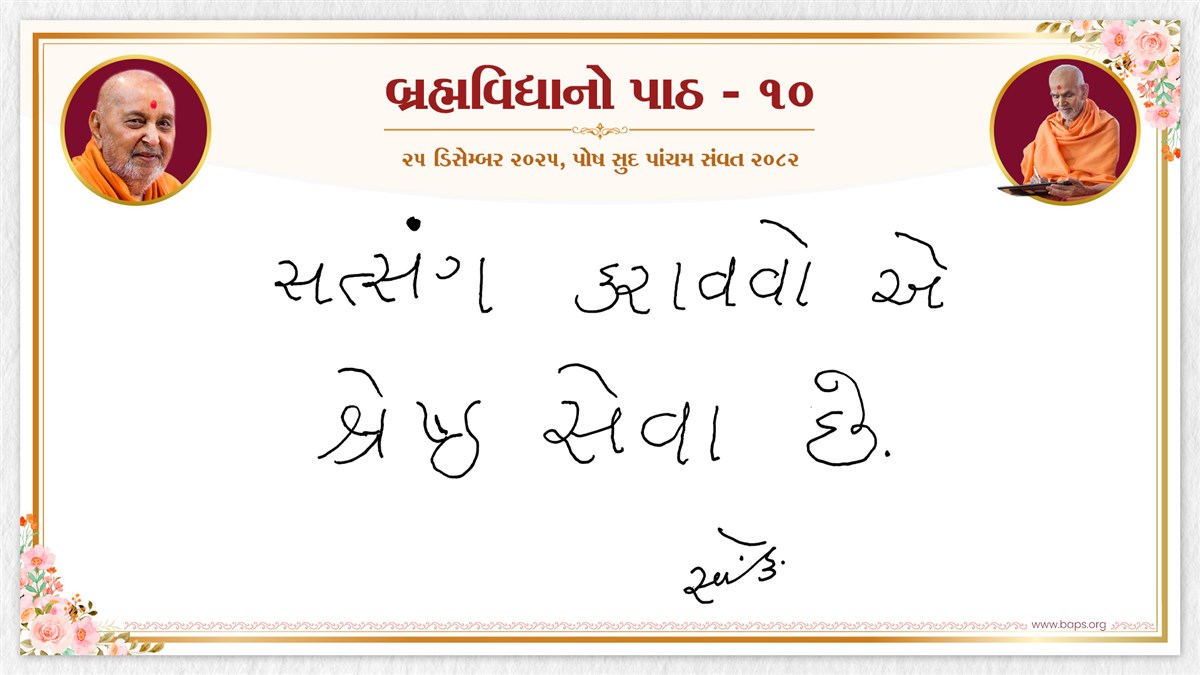 બ્રહ્મવિદ્યાનો પાઠ - ૧૦
૨૫ ડિસેમ્બર ૨૦૨૫, પોષ સુદ પાંચમ સંવત ૨૦૮૨
સત્સંગ કરાવવો એ
શ્રેષ્ઠ સેવા છે.
www.baps.org